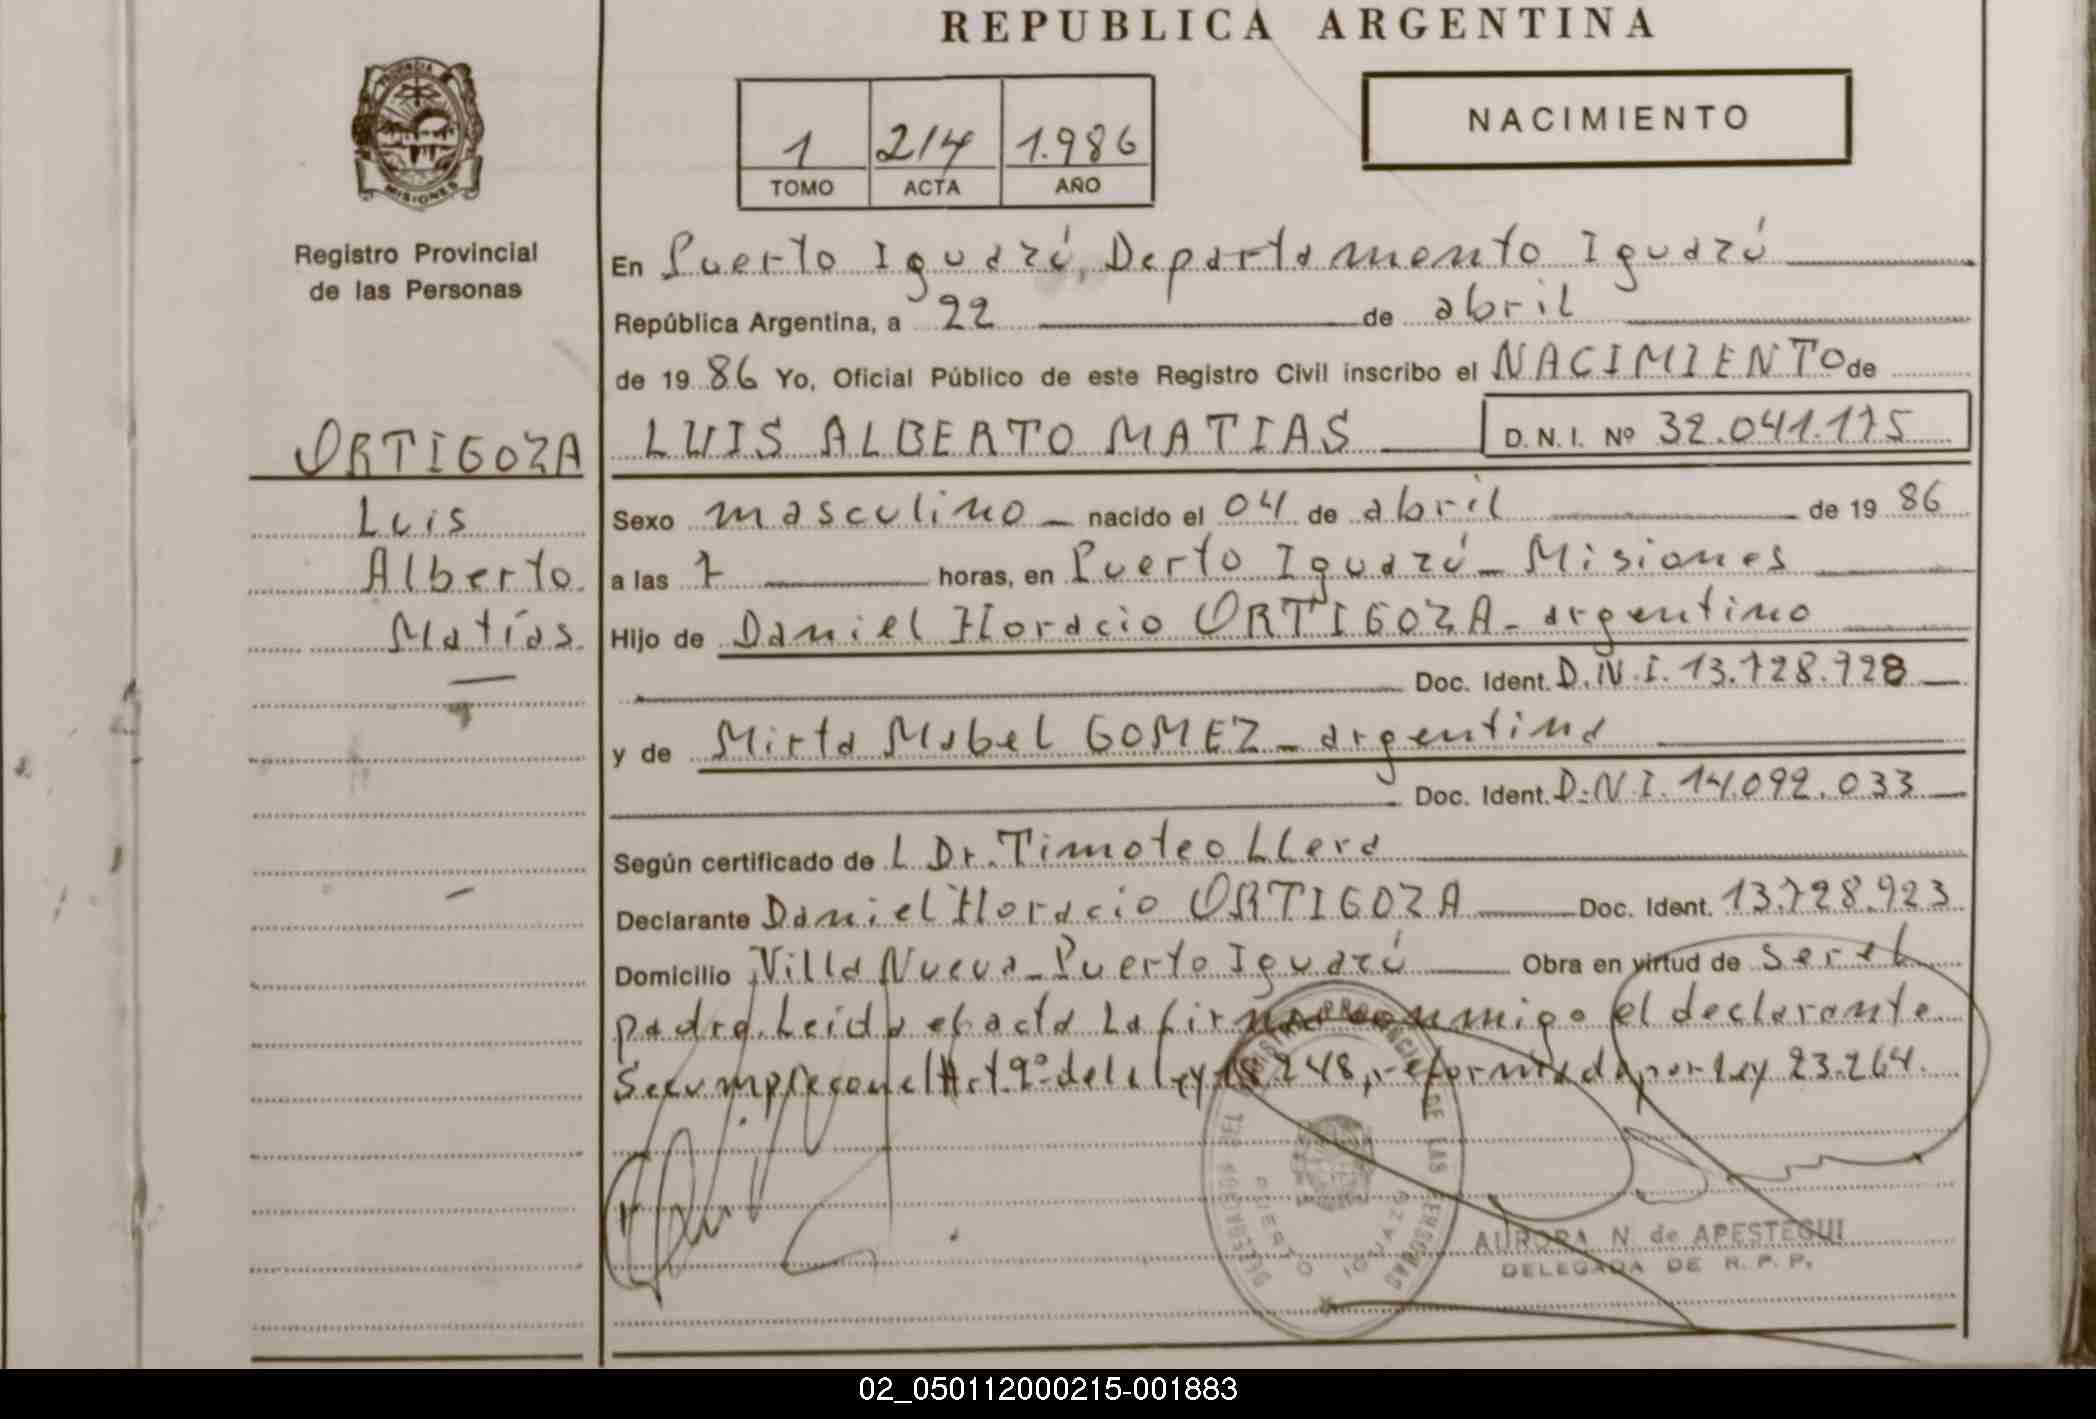 REPUBLICA ARGENTINA
NACIMIENTO
1 214 1.986
TOMO ACTA AÑO
MISIONES
Registro Provincial
de las Personas
ORTIGOZA
Luis
Alberto
Matías.
En Puerto Iguazú, Departamento Iguazú
República Argentina, a 22 de abril
de 19 86 Yo, Oficial Público de este Registro Civil inscribo el NACIMIENTO de
LUIS ALBERTO MATIAS D.N.I. Nº 32.041.175
Sexo masculino nacido el 04 de abril de 19 86
a las 7 horas, en Puerto Iguazú - Misiones
Hijo de Daniel Horacio ORTIGOZA - argentino
Doc. Ident. D.N.I. 13.728.728
y de Mirta Mabel GOMEZ - argentina
Doc. Ident. D.N.I. 14.092.033
Según certificado de L Dr. Timoteo LLera
Declarante Daniel Horacio ORTIGOZA Doc. Ident. 13.728.923
Domicilio Villa Nueva - Puerto Iguazú Obra en virtud de ser el
padre. Leida el acta La firma conmigo el declarante
Se cumple con el Art. 9º de la ley 18.248, reformada por Ley 23.264.
AURORA N. de APESTEGUI
DELEGADA DE R. P. P.
02_050112000215-001883